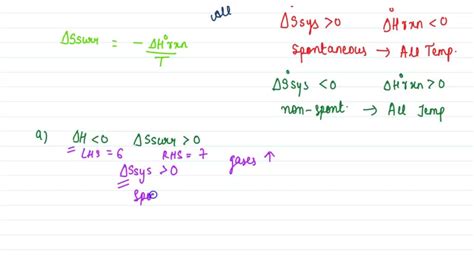 all
ΔSsurr = - ΔH°rxn / T
ΔS°sys > 0 ΔH°rxn < 0
spontaneous → All Temp.
ΔS°sys < 0 ΔH°rxn > 0
non-spont. → All Temp
a) ΔH < 0 ΔSsurr > 0
LHS = 6 RHS = 7 gases ↑
ΔSsys > 0
Spo